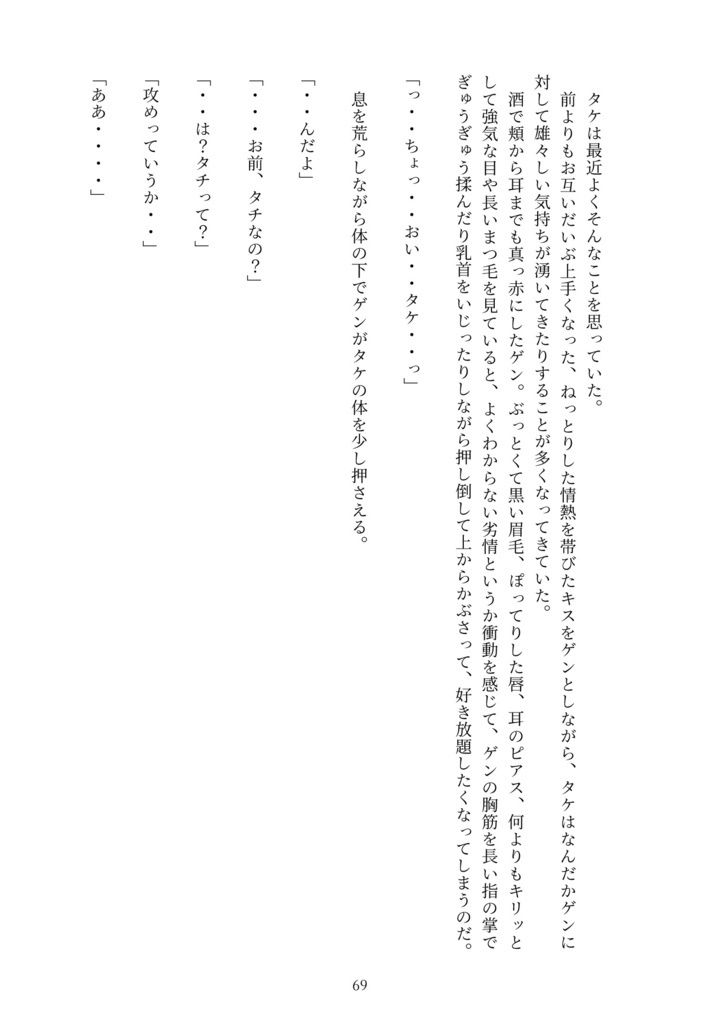 タケは最近よくそんなことを思っていた。
前よりもお互いだいぶ上手くなった、ねっとりした情熱を帯びたキスをゲンとしながら、タケはなんだかゲンに
対して雄々しい気持ちが湧いてきたりすることが多くなってきていた。
酒で頬から耳までも真っ赤にしたゲン。ぶっとくて黒い眉毛、ぽってりした唇、耳のピアス、何よりもキリッと
して強気な目や長いまつ毛を見ていると、よくわからない劣情というか衝動を感じて、ゲンの胸筋を長い指の掌で
ぎゅうぎゅう揉んだり乳首をいじったりしながら押し倒して上からかぶさって、好き放題したくなってしまうのだ。
「っ・・ちょっ・・おい・・タケ・・っ」
息を荒らしながら体の下でゲンがタケの体を少し押さえる。
「・・んだよ」
「・・・お前、タチなの？」
「・・は？タチって？」
「攻めっていうか・・」
「ああ・・・・」
69